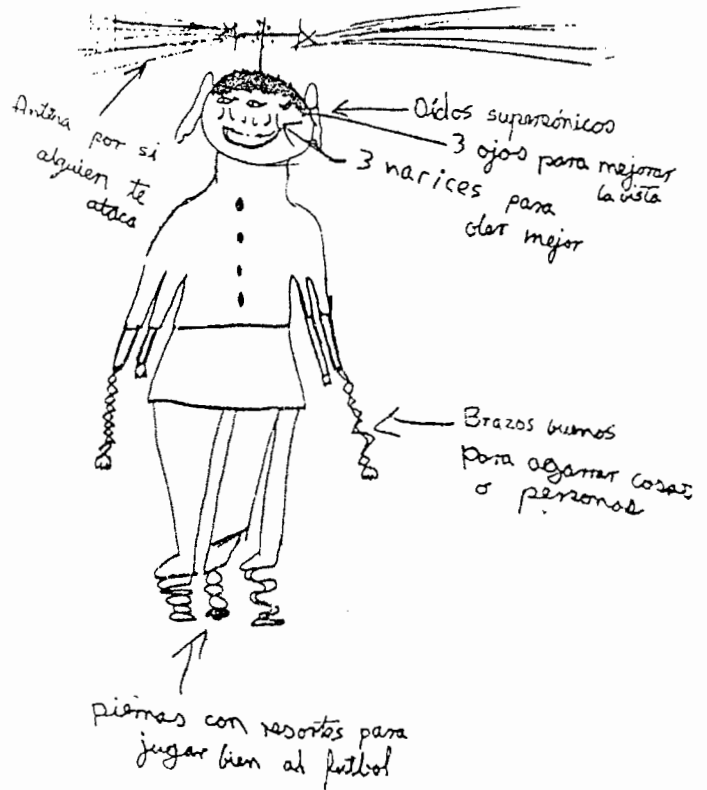 Antena por si
alguien te
ataca
Oídos supersónicos
3 ojos para mejorar
la vista
3 narices para
oler mejor
Brazos buenos
para agarrar cosas
o personas
piernas con resortes para
jugar bien al futbol